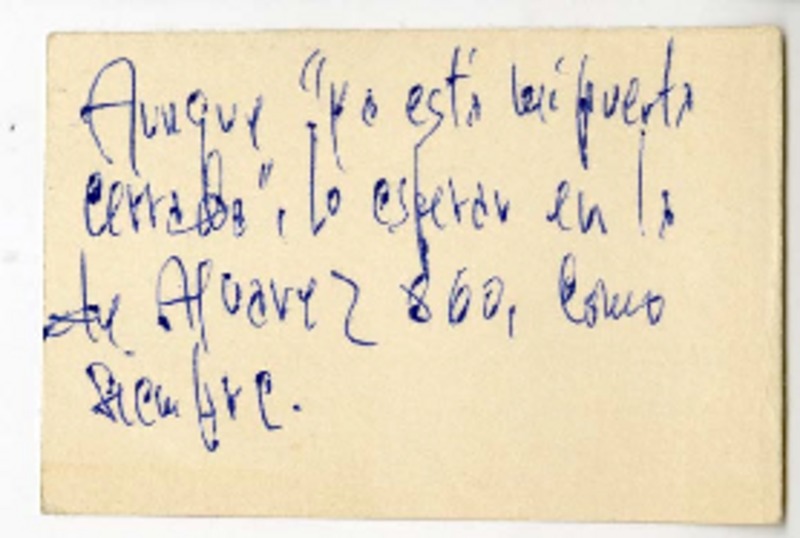 Aunque "ya está mi puerta
cerrada", lo esperar en la
de Alvarez 860, como
siempre.